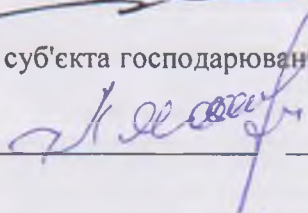 суб'єкта господарюван